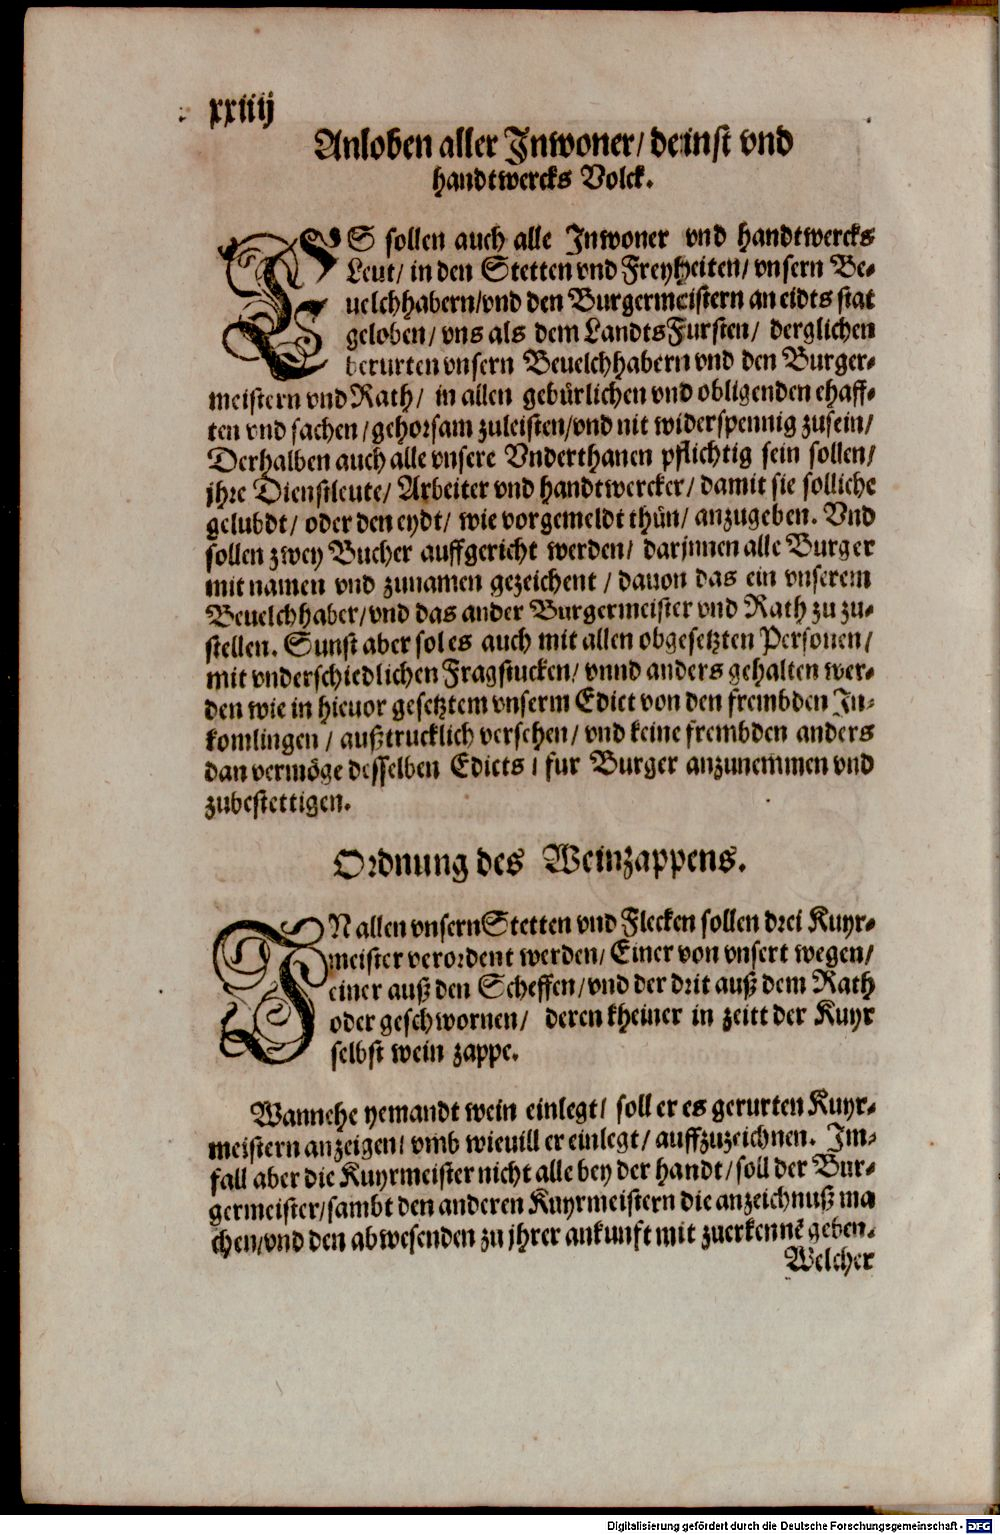 xxiiij
Anloben aller Inwoner/ deinst vnd
handtwercks Volck.
ES sollen auch alle Inwoner vnd handtwercks
Leut/ in den Stetten vnd Freyheiten/ vnsern Be-
uelchhabern/vnd den Burgermeistern an eidts stat
geloben/ vns als dem LandtsFursten/ derglichen
berurten vnsern Beuelchhabern vnd den Burger-
meistern vnd Rath/ in allen gebürlichen vnd obligenden ehaff-
ten vnd sachen/gehorsam zuleisten/vnd nit widerspennig zusein/
Derhalben auch alle vnsere Vnderthanen pflichtig sein sollen/
jhre Dienstleute/ Arbeiter vnd handtwercker/ damit sie solliche
gelubdt/ oder den eydt/ wie vorgemeldt thün/ anzugeben. Vnd
sollen zwey Bucher auffgericht werden/ darjnnen alle Burger
mit namen vnd zunamen gezeichent / dauon das ein vnserem
Beuelchhaber/vnd das ander Burgermeister vnd Rath zu zu-
stellen. Sunst aber sol es auch mit allen obgesetzten Personen/
mit vnderschiedlichen Fragstucken/ vnnd anders gehalten wer-
den wie in hieuor gesetztem vnserm Edict von den frembden In-
komlingen / außtrucklich versehen/ vnd keine frembden anders
dan vermöge desselben Edicts / fur Burger anzunemmen vnd
zubestettigen.
Ordnung des Weinzappens.
IN allen vnsern Stetten vnd Flecken sollen drei Kuyr-
meister verordent werden/ Einer von vnsert wegen/
einer auß den Scheffen/vnd der drit auß dem Rath
oder geschwornen/ deren kheiner in zeitt der Kuyr
selbst wein zappe.
Wannehe yemandt wein einlegt/ soll er es gerurten Kuyr-
meistern anzeigen/ vmb wieuill er einlegt/ auffzuzeichnen. Im-
fall aber die Kuyrmeister nicht alle bey der handt/soll der Bur-
germeister/sambt den anderen Kuyrmeistern die anzeichnuß ma
chen/vnd den abwesenden zu jhrer ankunft mit zuerkennē geben.
Welcher
Digitalisierung gefördert durch die Deutsche Forschungsgemeinschaft - DFG